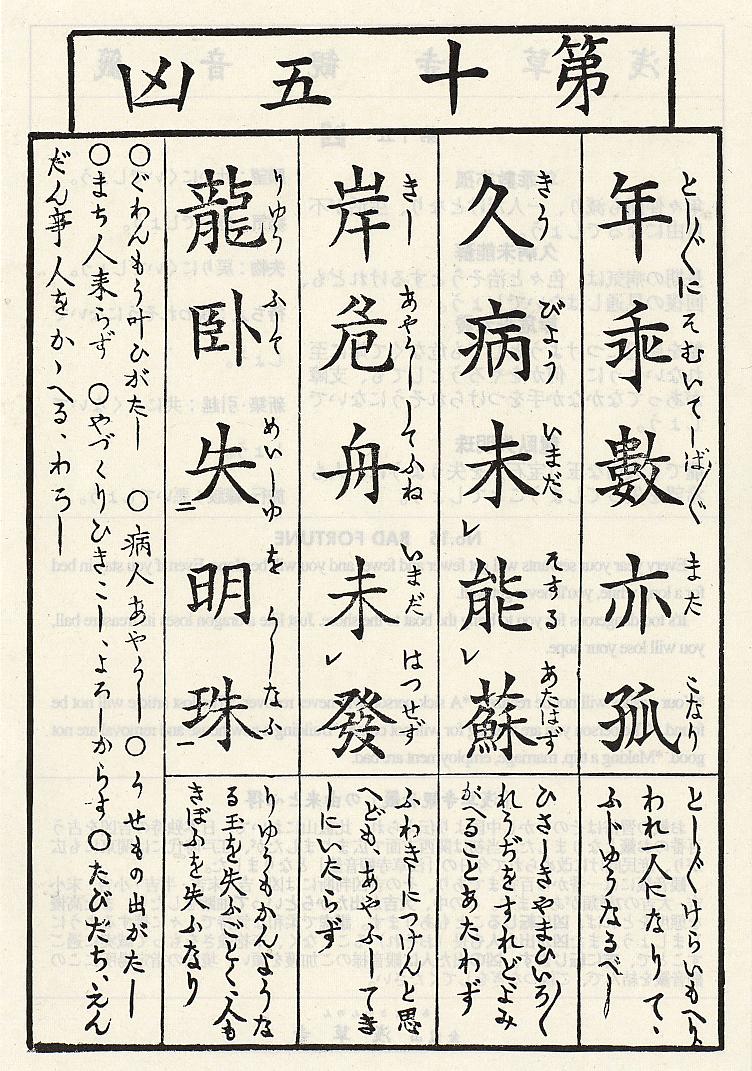 第十五凶
年乖數亦孤
としにそむいてしば また こなり
としけらいもへり
われ人になりして、
ふじゆうなるべし
久病未レ能レ蘇
きう びよう いまだ そする あたはず
ひさしきやまひいろ
れうぢをすれどよみ
がへることあたわず
岸危舟未レ發
きし あやうしてふね いまだ はつせず
ふねきしにつけんと思
へども、あやふしてき
しにいたらず
龍卧失二明珠一
りゆう ふして めいしゆ を うしなふ
りゆうもかんような
る玉を失ふごとく、人も
きぼふを失ふなり
〇ぐわんもう叶ひがたし 〇病人あやうし 〇うせもの出がたし
〇まち人来らず 〇やづくりひきこし、よろしからす〇たびだち、えん
だん事人をかゝへる、わろし